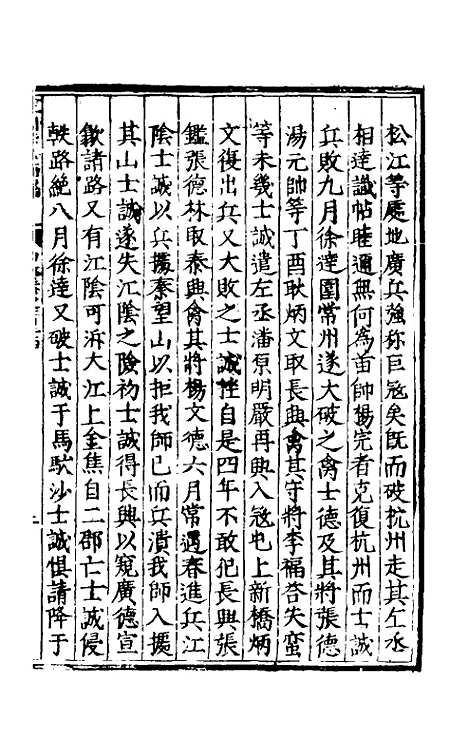 松江等處地廣兵強称巨冦矣既而破杭州走其左丞
相達識帖睦邇無何為苗帥楊完者克復杭州而士誠
兵敗九月徐達圍常州遂大破之禽士德及其將張德
湯元帥等丁酉耿炳文取長興禽其守將李福荅失蠻
等未幾士誠遣左丞潘原明嚴再興入冦屯上新橋炳
文復出兵又大敗之士誠性自是四年不敢犯長興張
鑑張德林取泰興禽其將楊文德六月常遇春進兵江
陰士誠以兵據秦望山以拒我師已而兵潰我師入據
其山士誠遂失江陰之險初士誠得長興以窺廣德宣
歙諸路又有江陰可泝大江上金焦自二郡亡士誠侵
軼路絶八月徐達又破士誠于馬馱沙士誠惧請降于